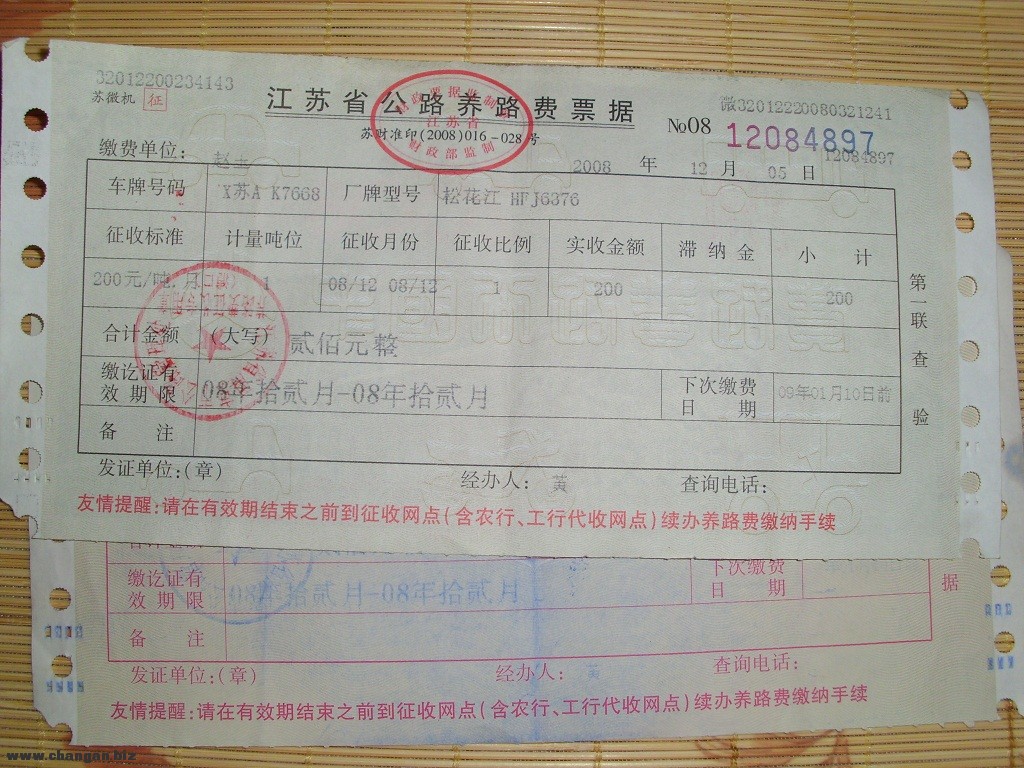 32012200234143
苏微机 征
江苏省公路养路费票据
苏财准印(2008)016-028号
财政票据监制章
江苏省
财政部监制
微32012220080321241
№08 12084897
12084897
缴费单位:
2008 年 12 月 05 日
车牌号码 X苏A K7668 厂牌型号 松花江 HFJ6376
征收标准 计量吨位 征收月份 征收比例 实收金额 滞纳金 小计
200元/吨.月 1 08/12 08/12 1 200 200
合计金额 (大写) 贰佰元整
缴讫证有效期限 08年拾贰月-08年拾贰月 下次缴费日期 09年01月10日前
备注
第一联 查验
发证单位:(章) 经办人: 黄 查询电话:
友情提醒:请在有效期结束之前到征收网点(含农行、工行代收网点)续办养路费缴纳手续
缴讫证有效期限 08年拾贰月-08年拾贰月 下次缴费日期
据
备注
发证单位:(章) 经办人: 黄 查询电话:
友情提醒:请在有效期结束之前到征收网点(含农行、工行代收网点)续办养路费缴纳手续
www.changan.biz